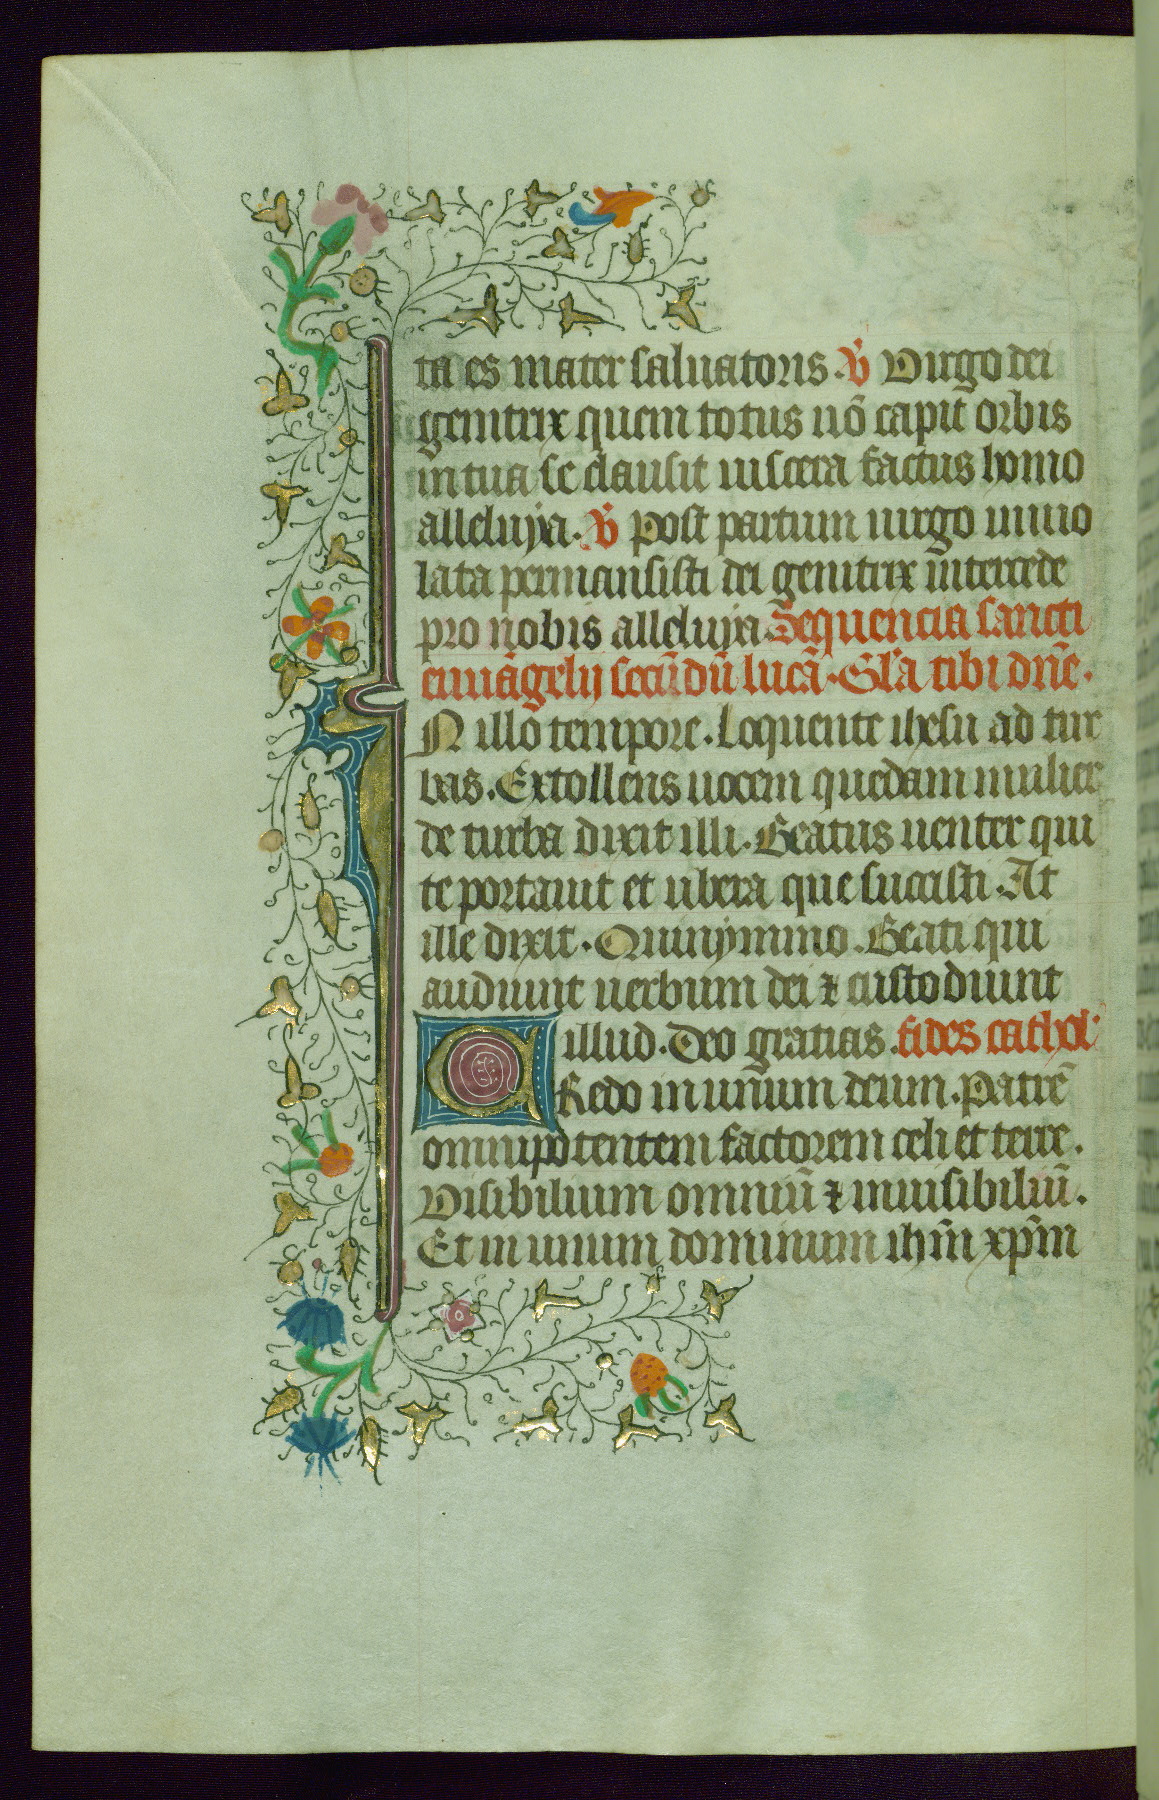 ta es mater saluatoris. ℣ Virgo dei
genitrix quem totus nō capit orbis
in tua se clausit uiscera factus homo
alleluya. ℣ Post partum uirgo inuio
lata permansisti dei genitrix intercede
pro nobis alleluya Sequencia sancti
euuāgelij secūdū lucā. Gl'a tibi dñe.
IN illo tempore. Loquente ihesu ad tur
bas. Extollens uocem quedam mulier
de turba dixit illi. Beatus uenter qui
te portauit et ubera que succisti. At
ille dixit. Quinymmo. Beati qui
audiunt uerbum dei ⁊ custodiunt
illud. Deo gratias. fides cathol'
CRedo in unum deum. Patrē
omnipotentem factorem celi et terre.
Visibilium omniū ⁊ inuisibiliū.
Et in unum dominum ihm̄ xp̄m